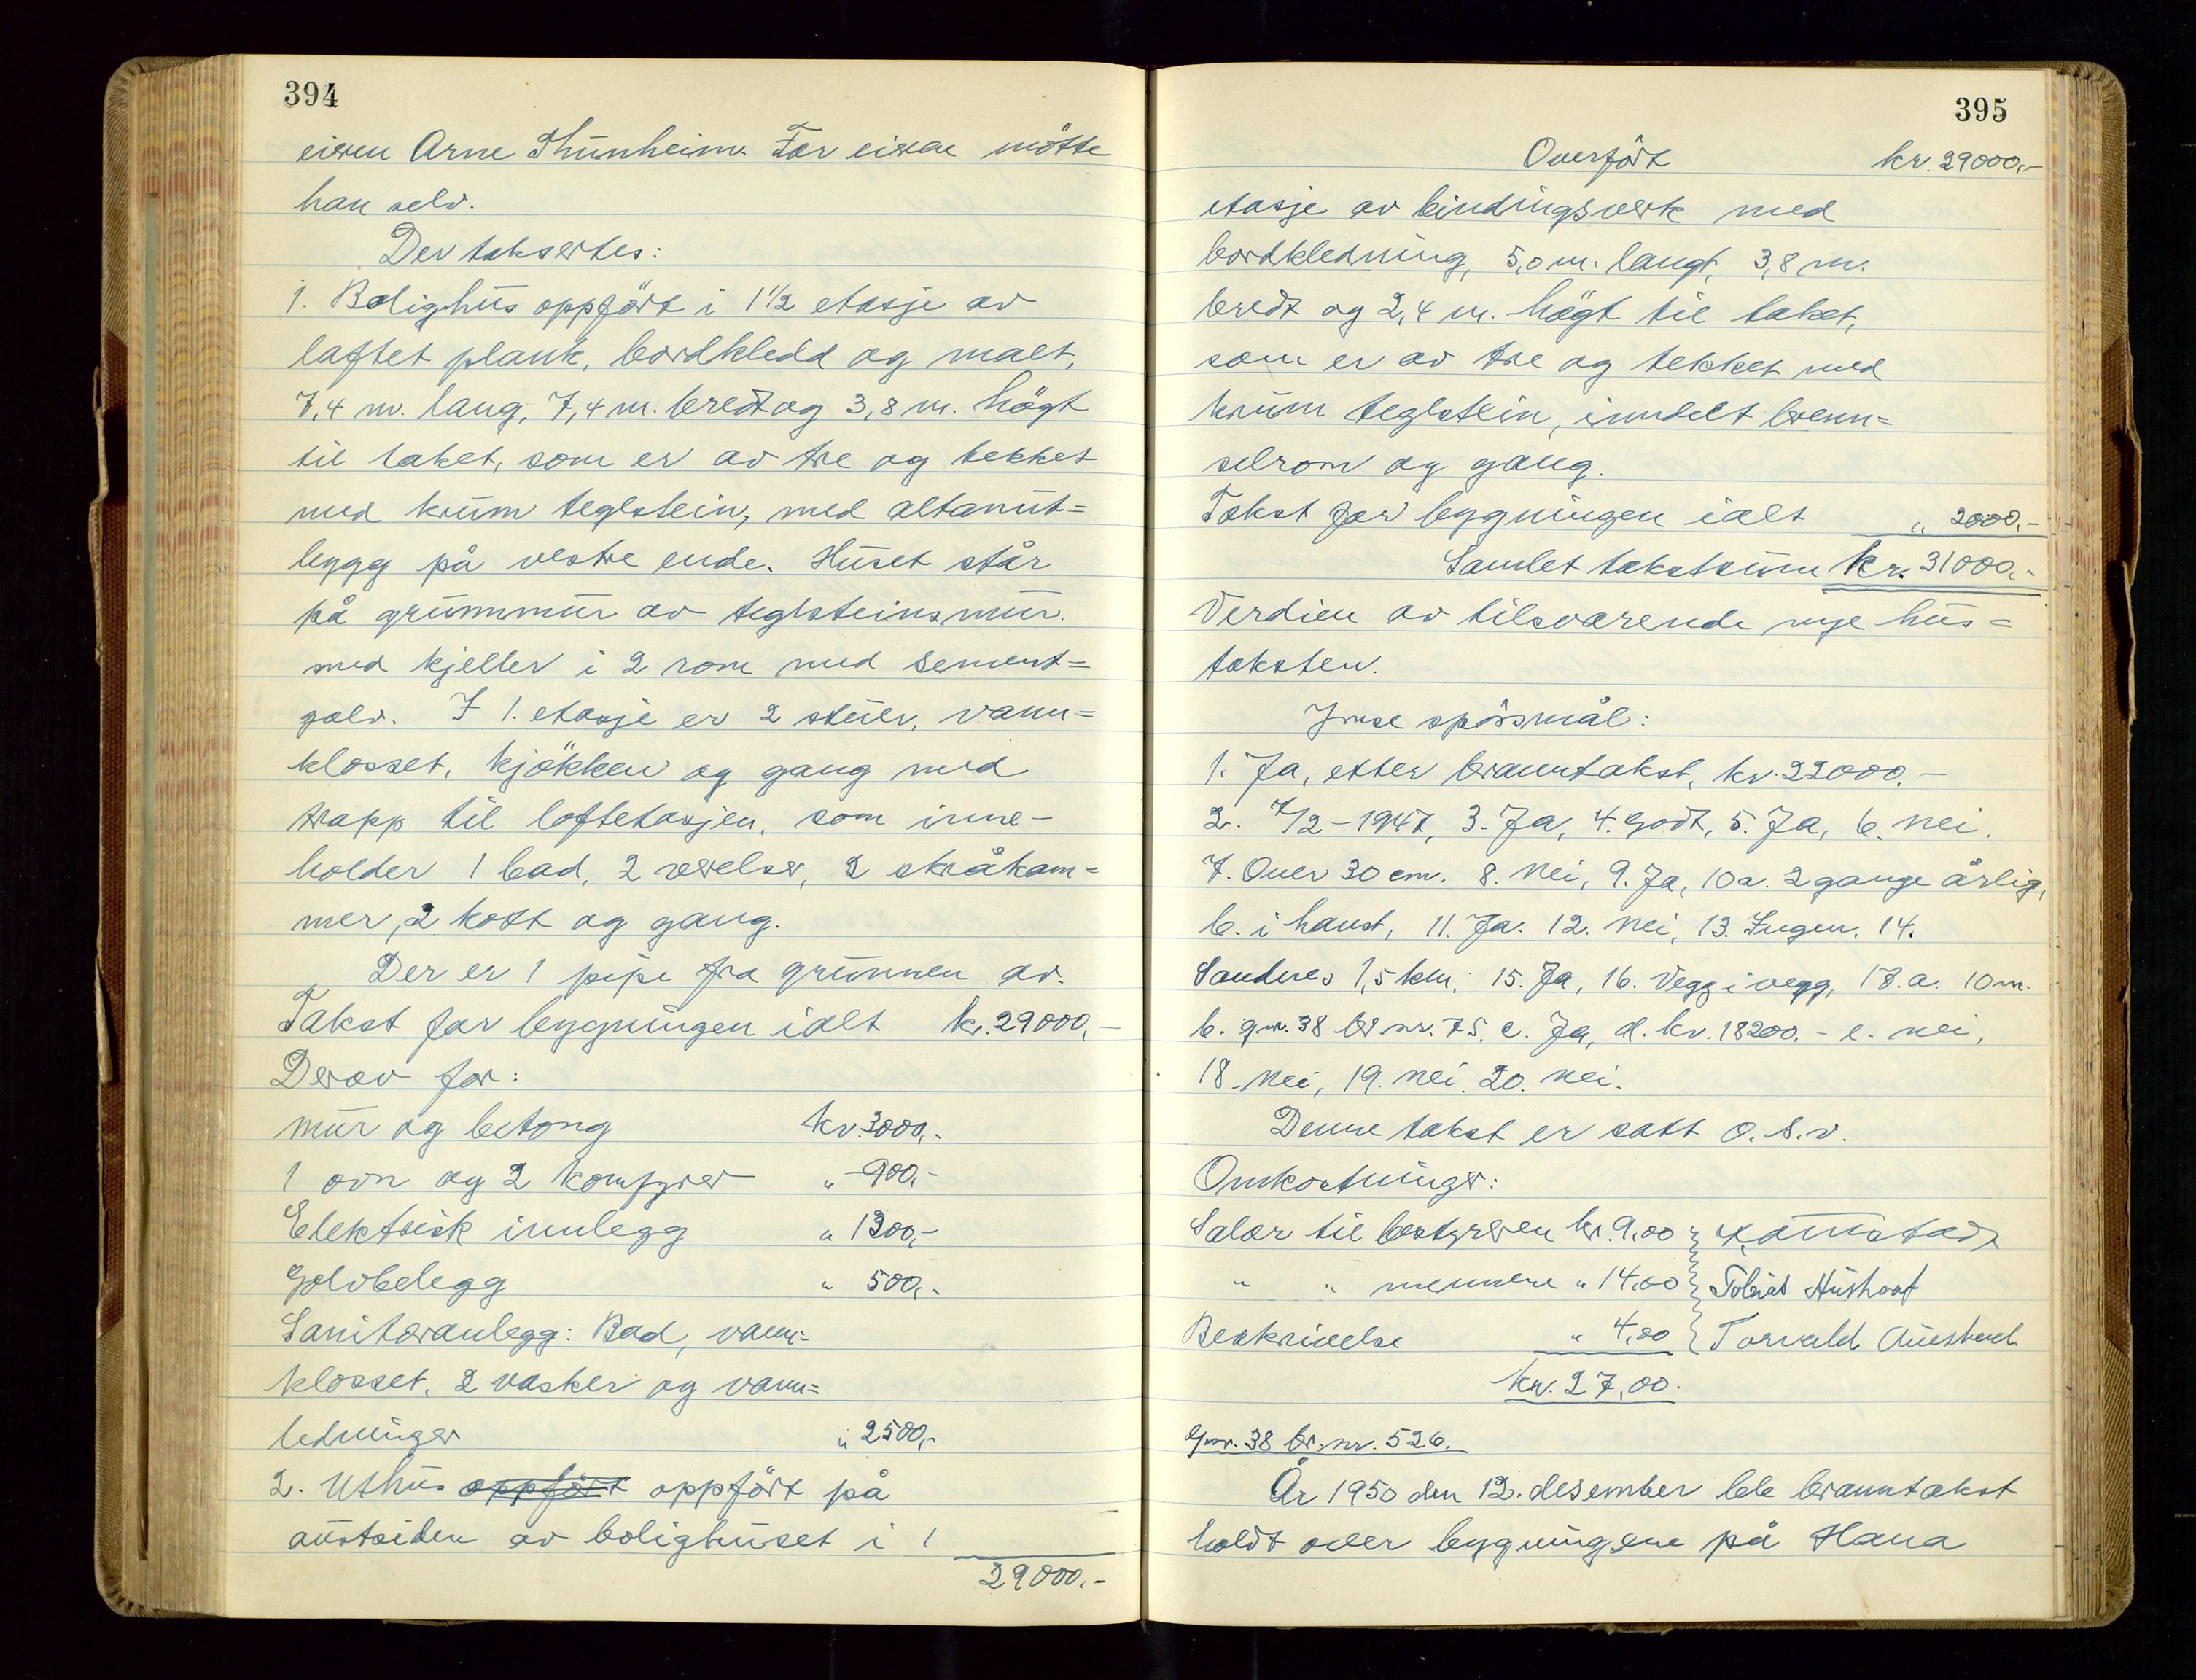 394
eieren Arne Thunheim. For eieren mötte
han selv.
Der taksertes:
1. Bolighus oppfört i 1½ etasje av
laftet plank, bordkledd og malt,
7,4 m. lang, 7,4 m. bredt og 3,8 m. högt
til taket, som er av tre og tekket
med krum teglstein, med altanut=
bygg på vestre ende. Huset står
på grunnmur av teglsteinsmur.
med kjeller i 2 rom med sement=
golv. I 1. etasje er 2 stuer, vann=
klosset, kjökken og gang med
trapp til loftetasjen, som inne-
holder 1 bad, 2 værelser, 2 skråkam=
mer, 2 kott og gang.
Der er 1 pipe fra grunnen av.
Takst for bygningen ialt kr. 29000,-
Derav for:
mur og betong kr. 3000,-
1 ovn og 2 komfyrer " 900,-
Elektrisk innlegg " 1300,-
Golvbelegg " 500,-
Sanitæranlegg: Bad, vann=
klosset, 2 vasker og vann=
ledninger " 2500,-
2. Uthus oppfört oppfört på
austsiden av bolighuset i 1
29000,-
395
Overfört kr. 29000,-
etasje av bindingsverk med
bordkledning, 5,0 m. langt, 3,8 m.
bredt og 2,4 m. högt til taket,
som er av tre og tekket med
krum teglstein, inndelt brenn=
selrom og gang.
Takst for bygningen ialt " 2000,-
Samlet takstsum kr. 31000,-
Verdien av tilsvarende nye hus =
taksten.
Ymse spörsmål:
1. Ja, etter branntakst, kr. 22000.-
2. 7/2-1947, 3. Ja, 4. godt, 5. Ja, 6. nei.
7. Over 30 cm. 8. Nei, 9. Ja, 10 a. 2 gange årlig,
b. i haust, 11. Ja. 12. Nei, 13. Ingen. 14.
Sandnes 1,5 km, 15. Ja, 16. Vegg i vegg, 17. a. 10 m.
b. gnr. 38 br. nr. 75. c. Ja, d. kr. 18200.- e. nei,
18. Nei, 19. nei. 20. nei.
Denne takst er satt o.s.v.
Omkostninger:
Salær til bestyreren kr. 9,00
" " mennene " 14,00 Tobias Hushovt
Beskrivelse " 4,00 Torvald
kr. 27,00.
Gnr. 38 br. nr. 526.
År 1950 den 12. desember ble branntakst
holdt over bygningene på Hana